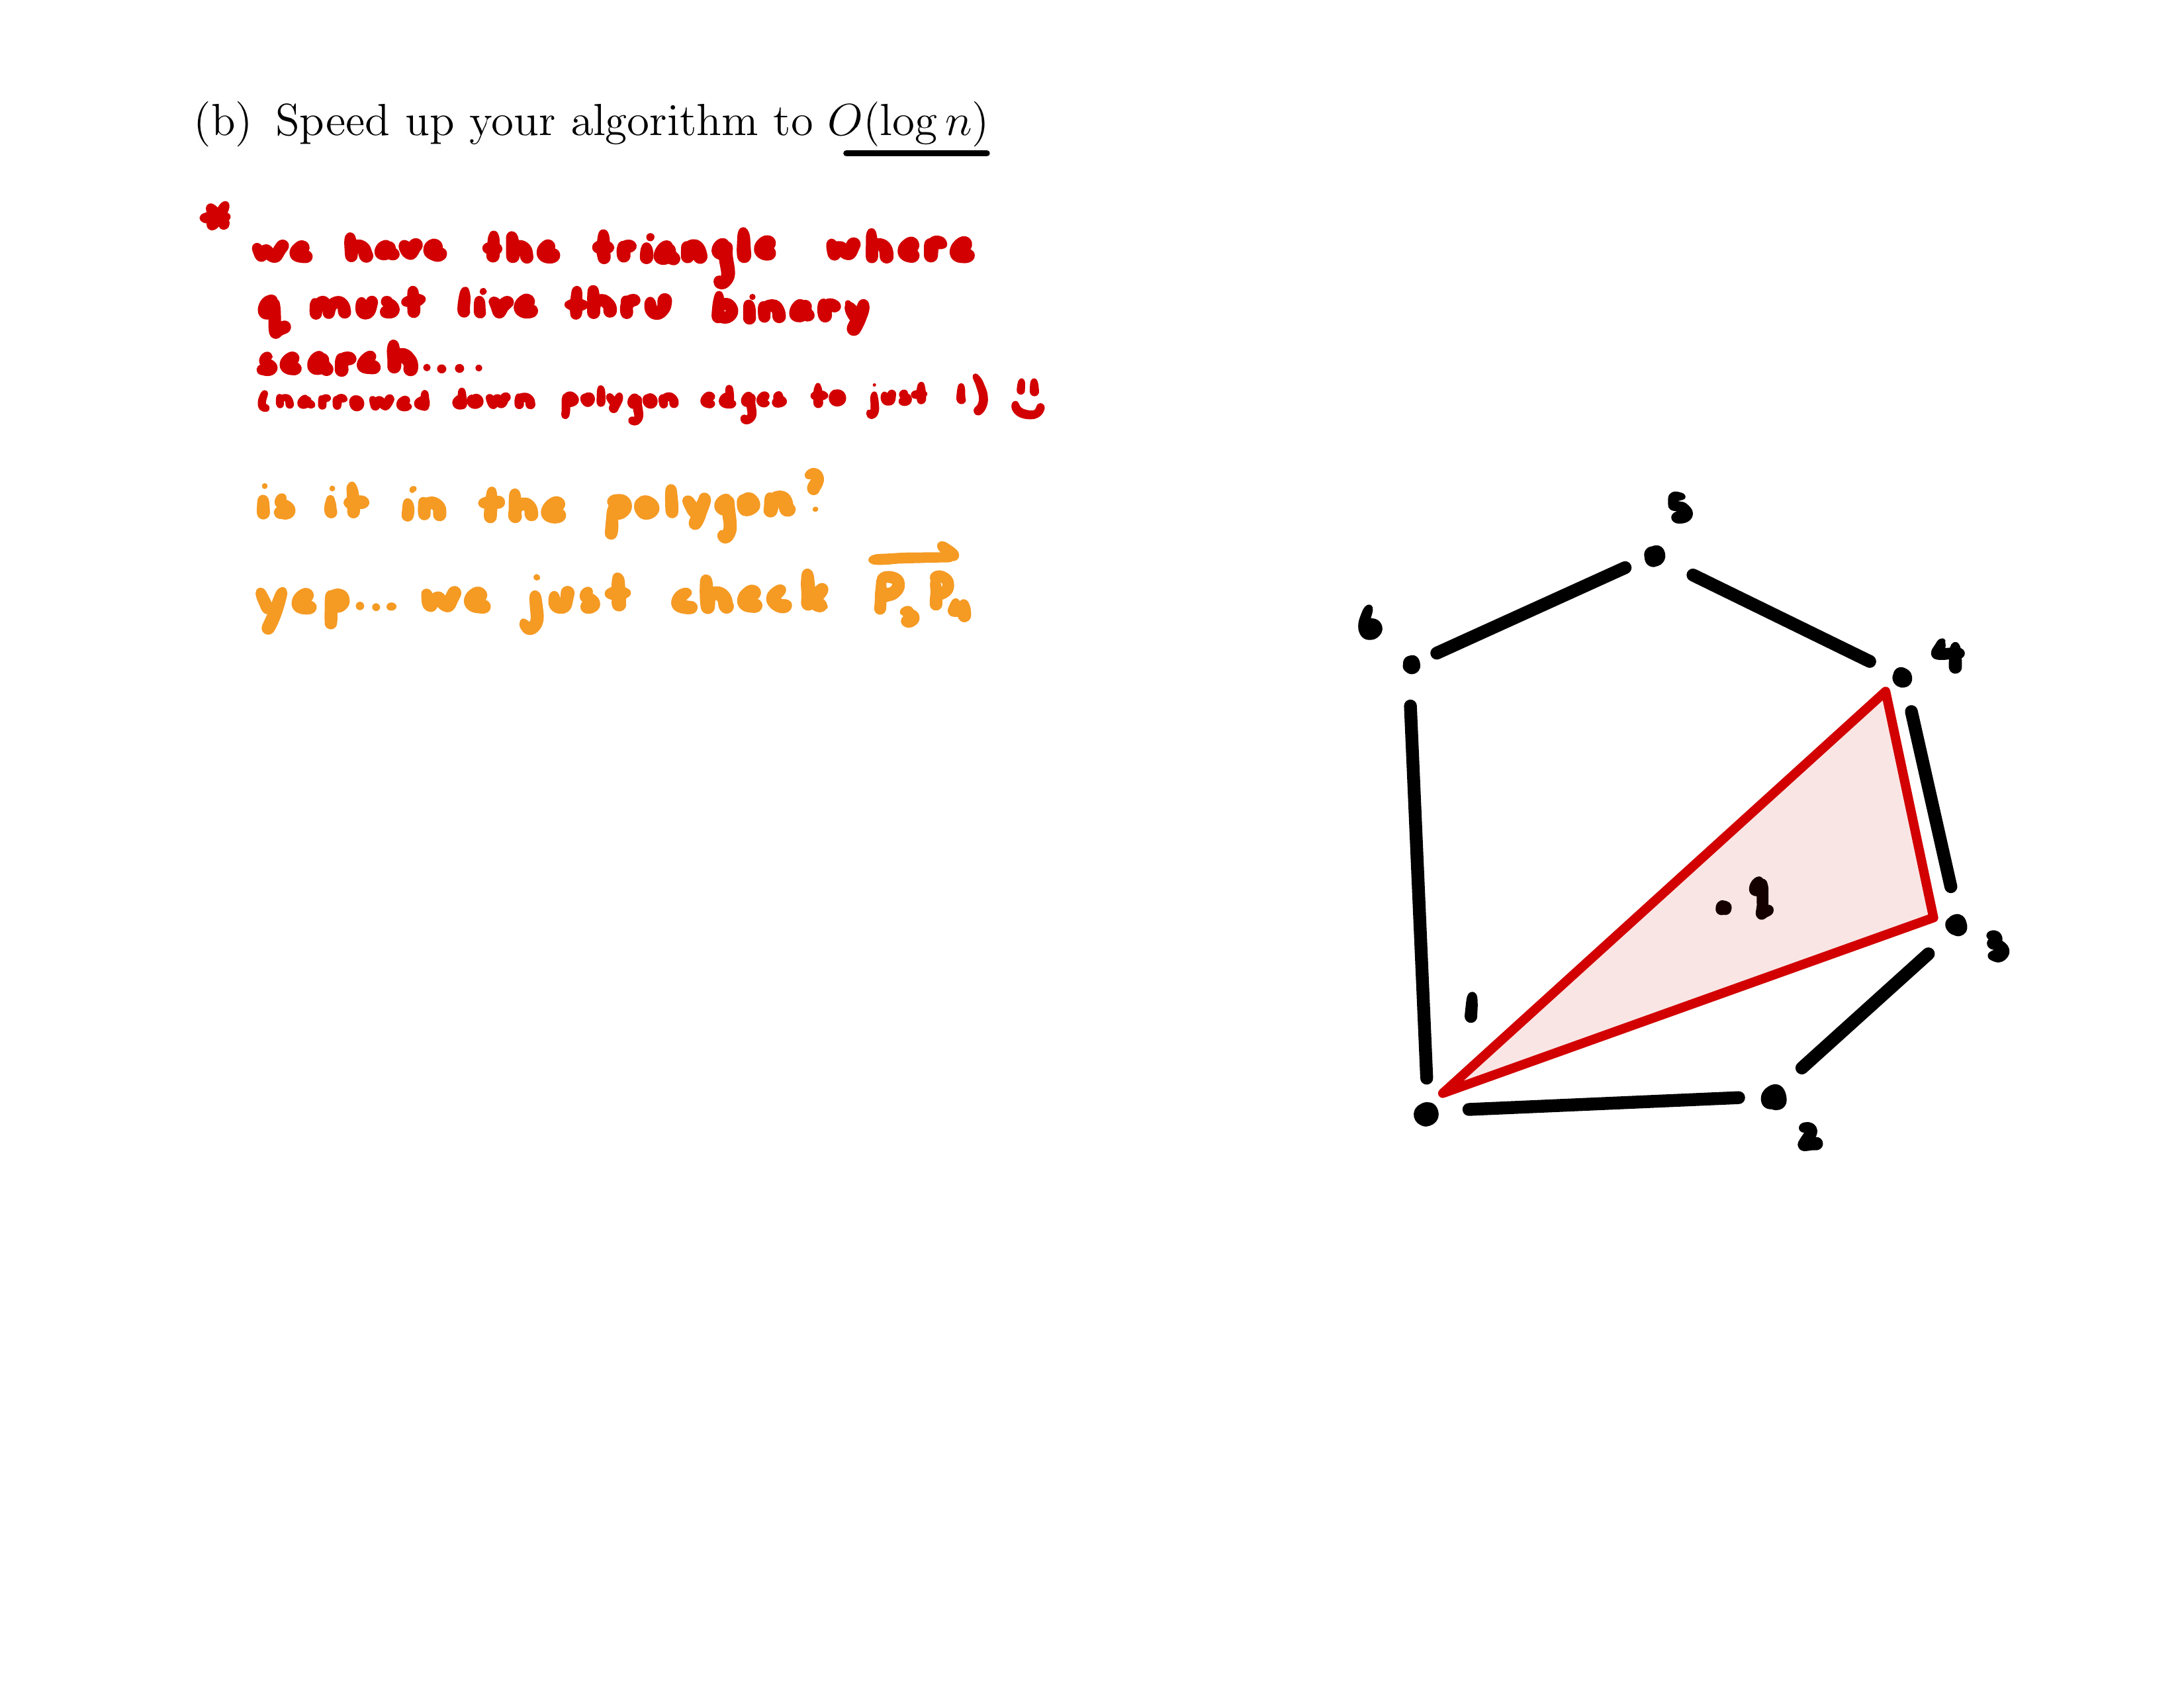 (b) Speed up your algorithm to O(log n)
* we have the triangle where
q must live thru binary
search....
(narrowed down polygon edges to just 1) :)
is it in the polygon?
yep... we just check P3P4
5
6
4
.q
3
1
2